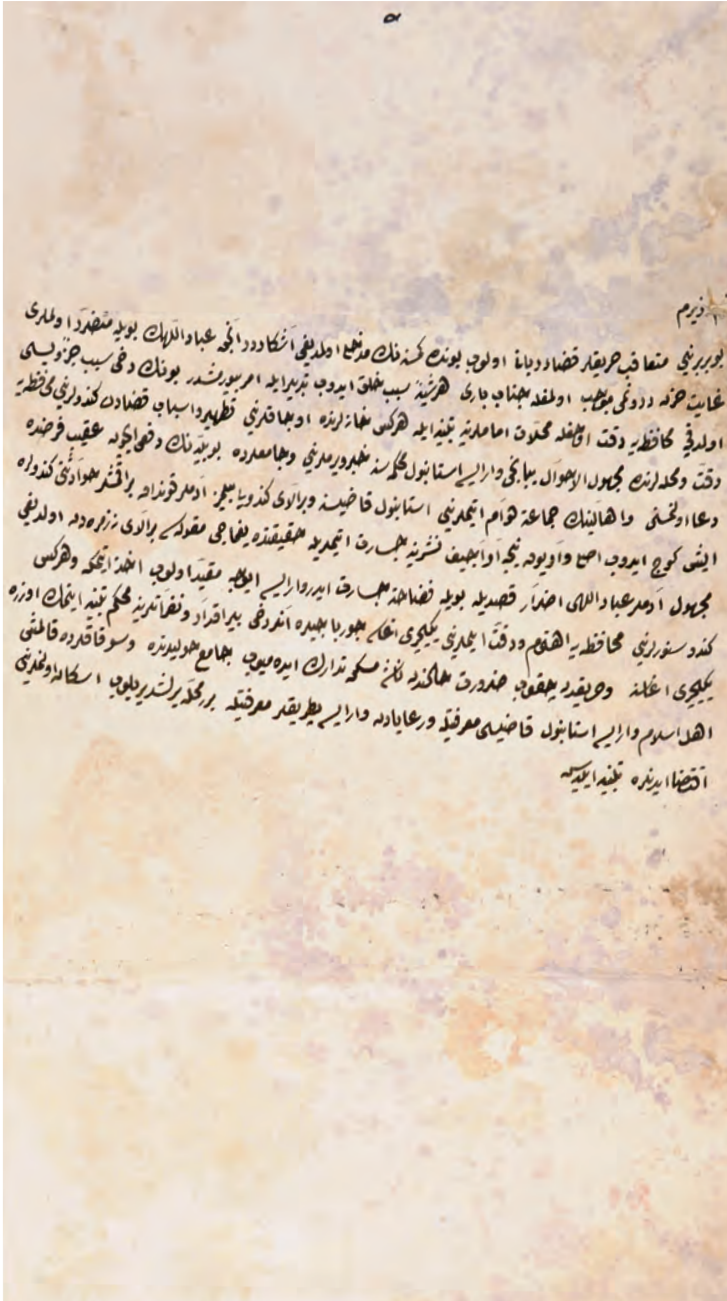 وزيرم
بو بربرينى متعاقب حريقلر قضا و دياننا اولوب بونده كمسه نك مدخلى اولمديغى آشكاردر انجق عباد اللهك بويله متضرر اولملرى
غايت حزنه درونمى موجب اولمغله جناب بارى هر شيئه سبب خلق ايدوب تدبير ايله امر بيورمشدر بونك دخى سبب جزئيسى
اولدقى محافظه يه دقت اولمغله محلات اماملرينه تنبيه ايله هركس خانه لرنده اوجاقلرينى تطهير و اسباب قضادن كندولرينى محافظه يه
دقت و محله لرنده مجهول الاحوال يبانجى وار ايسه استانبول محكمه سنه خبر ويرملرينى و جامعلرده بو بليه نك دفعى ايچون عقيب فرضده
دعا اولنمسنى و اهالينك جماعته دوام ايتملرينى استانبول قاضيسنه و برآلاى كندويى بيلمز آدملر قوندا براقمش حوادثنى كندولره
ايش كوج ايدوب اصلى و ار يوق نيجه اراجيف نشرينه جسارت ايتمريله حقيقتده يغماجى مقوله سى برآلاى نه زره دن اولديغى
مجهول آدملر عباد اللهى اضرار قصديله بويله فضاحته جسارت ايدر وار ايسه مقيد اولوب اخذ ايتمكه و هركس
كندو سنورلرينى محافظه يه اهتمام و دقت ايتملرينى يكيچرى اغاسى جورباجيلره انلر دخى بيراقدار و نفراتلرينه محكم تنبيه ايتمك اوزره
يكيچرى اغاسنه و حريقده يه چقوب ضرورت حالندن ناشى مسكن تدارك ايده ميوب جامع حوليلرنده و سوقاقلرده قالمش
اهل اسلام وار ايسه استانبول قاضيسى معرفتيله و رعايادن وار ايسه بطريقلر معرفتيله برر محله يرلشديريلوب اسكان اولنملرينى
اقتضا ايدنلره تنبيه ايليه سن